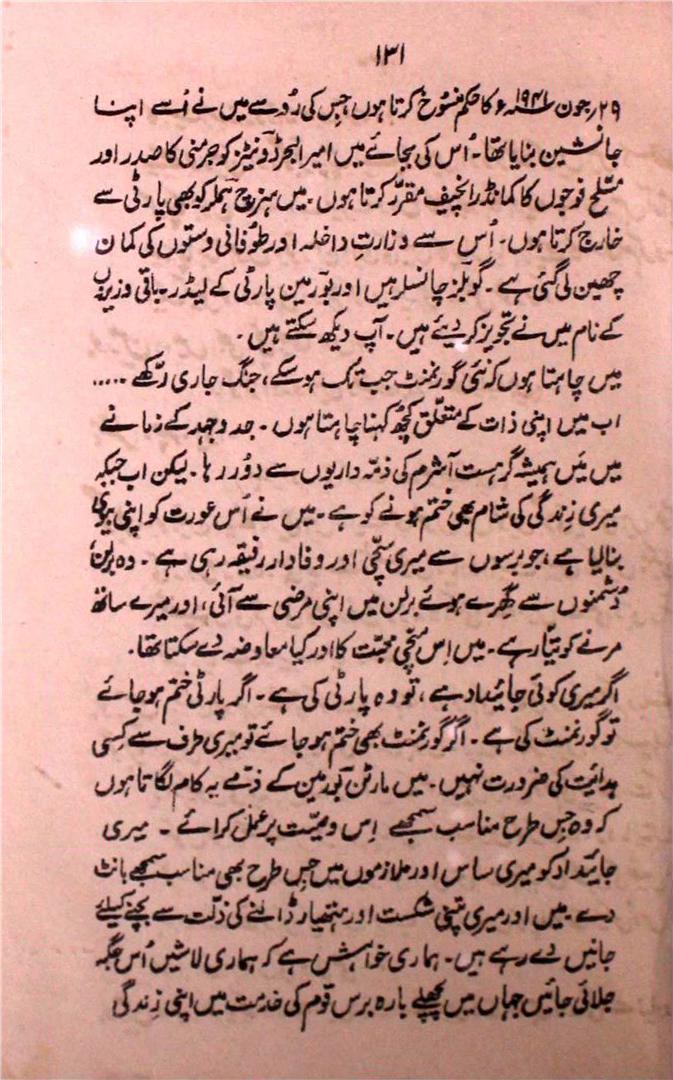 ۱۳۱
۲۹؍جون ۱۹۴۱؁ء کا حکم منسوخ کرتا ہوں جس کی رُو سے میں نے اُسے اپنا
جانشین بنایا تھا۔ اُس کی بجائے میں امیر البحر ڈونیٹز کو جرمنی کا صدر اور
مسلح فوجوں کا کمانڈر انچیف مقرر کرتا ہوں۔ میں ہنرچ ہملر کو بھی پارٹی سے
خارج کرتا ہوں۔ اُس سے وزارتِ داخلہ اور طوفانی دستوں کی کمان
چھین لی گئی ہے۔ گوبلز چانسلر ہیں اور بورمین پارٹی کے لیڈر۔ باقی وزیروں
کے نام میں نے تجویز کر دیئے ہیں۔ آپ دیکھ سکتے ہیں۔
میں چاہتا ہوں کہ نئی گورنمنٹ جب تک ہو سکے، جنگ جاری رکھے .....
اب میں اپنی ذات کے متعلق کچھ کہنا چاہتا ہوں۔ جدوجہد کے زمانے
میں مَیں ہمیشہ گرہست آشرم کی ذمہ داریوں سے دُور رہا۔ لیکن اب جبکہ
میری زندگی کی شام بھی ختم ہونے کو ہے۔ میں نے اُس عورت کو اپنی بیوی
بنا لیا ہے، جو برسوں سے میری سچی اور وفادار رفیقہ رہی ہے۔ وہ برلن،
دشمنوں سے گھِرے ہوئے برلن میں اپنی مرضی سے آئی، اور میرے ساتھ
مرنے کو تیار ہے۔ میں اِس سچی محبت کا اور کیا معاوضہ دے سکتا تھا۔
اگر میری کوئی جائیداد ہے، تو وہ پارٹی کی ہے۔ اگر پارٹی ختم ہو جائے
تو گورنمنٹ کی ہے۔ اگر گورنمنٹ بھی ختم ہو جائے تو میری طرف سے کسی
ہدائیت کی ضرورت نہیں۔ میں مارٹن بورمین کے ذمے یہ کام لگاتا ہوں
کہ وہ جس طرح مناسب سمجھے اِس وصیت پر عمل کرائے۔ میری
جائیداد کو میری ساس اور ملازموں میں جس طرح بھی مناسب سمجھے بانٹ
دے۔ میں اور میری پتنی شکست اور ہتھیار ڈالنے کی ذلت سے بچنے کیلئے
جانیں دے رہے ہیں۔ ہماری خواہش ہے کہ ہماری لاشیں اُس جگہ
جلائی جائیں جہاں میں پچھلے بارہ برس قوم کی خدمت میں اپنی زندگی